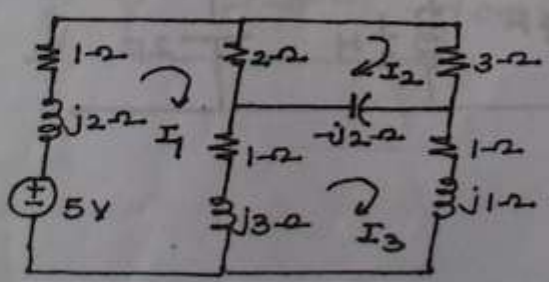 1Ω
2Ω
I2
3Ω
j2Ω
I1
-j2Ω
1Ω
1Ω
5V
j3Ω
I3
j1Ω